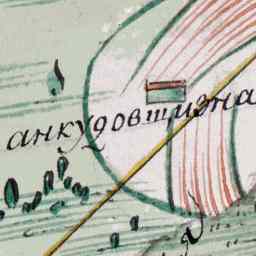 анкудовщизна